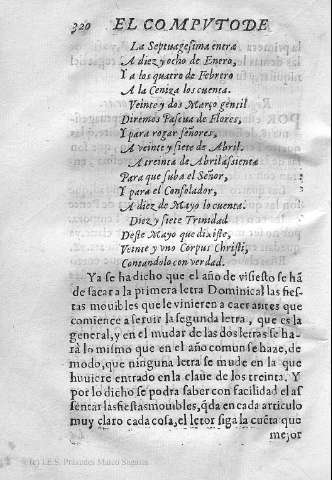 320 EL COMPVTO DE
La Septuagesima entra
A diez y ocho de Enero,
Y a los quatro de Febrero
A la Ceniza los cuenta.
Veinte y dos Março gensil
Diremos Pascua de Flores,
Y para rogar señores,
A veinte y siete de Abril.
A treinta de Abril assienta
Para que suba el Señor,
Y para el Consolador,
A diez de Mayo lo cuenta.
Diez y siete Trinidad
Deste Mayo que dixiste,
Veinte y vno Corpus Christi,
Contandolo con verdad.
Ya se ha dicho que el año de visiesto se hã
de sacar a la primera letra Dominical las fies
tas mouibles que le vinieren a caer antes que
comience a seruir la segunda letra, que es la
general, y en el mudar de las dos letras se ha-
rà lo mismo que en el año comun se haze, de
modo, que ninguna letra se mude en la que
huuiere entrado en la claue de los treinta. Y
por lo dicho se podra saber con facilidad el as
sentar las fiestas mouibles, q̃da en cada articulo
muy claro cada cosa, el letor siga la cuẽta que
mejor
(c) I.E.S. Práxedes Mateo Sagasta